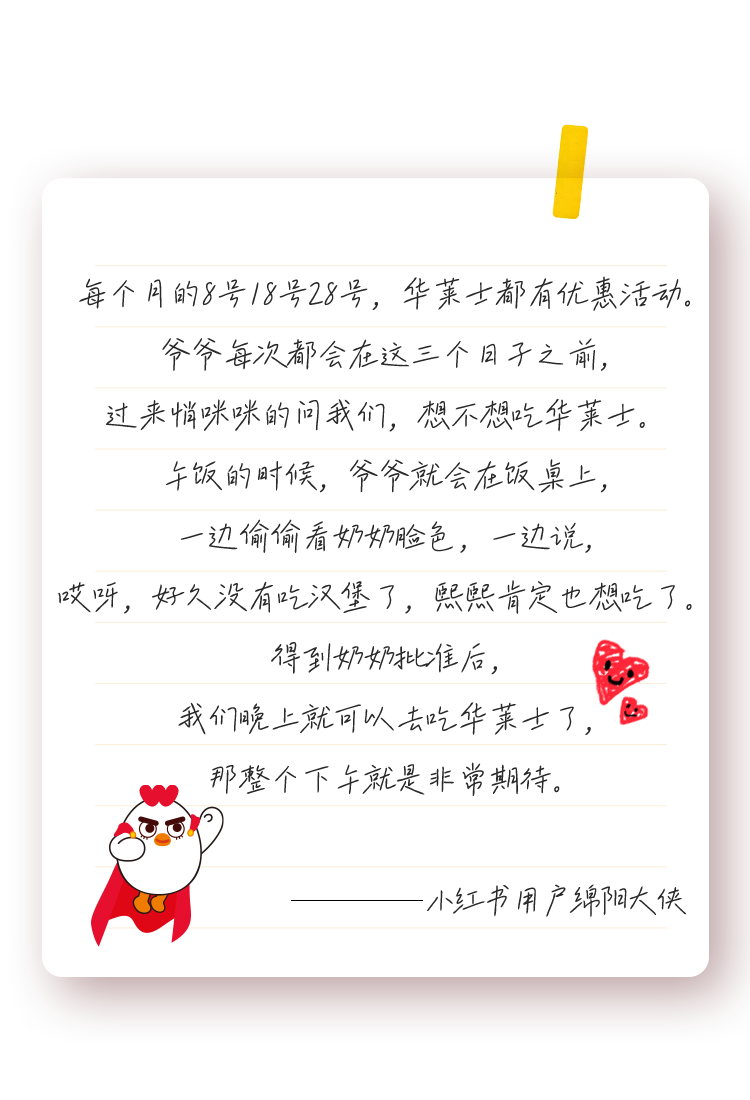 每个月的8号18号28号，华莱士都有优惠活动。
爷爷每次都会在这三个日子之前，
过来悄咪咪的问我们，想不想吃华莱士。
午饭的时候，爷爷就会在饭桌上，
一边偷偷看奶奶脸色，一边说，
哎呀，好久没有吃汉堡了，熙熙肯定也想吃了。
得到奶奶批准后，
我们晚上就可以去吃华莱士了，
那整个下午就是非常期待。
————小红书用户绵阳大侠